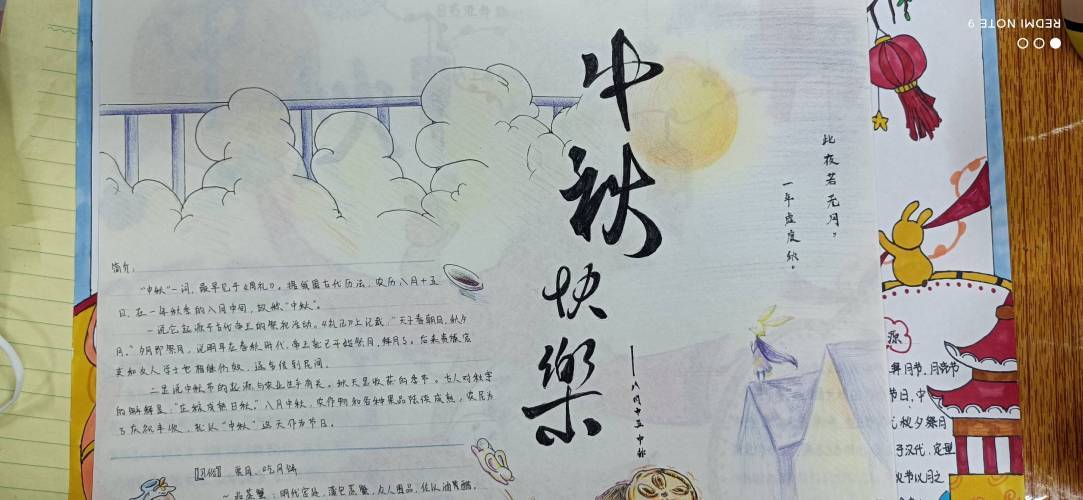 中秋快樂
——八月十五中秋
此夜若无月，
一年虚度秋。
简介：
"中秋"一词，最早见于《周礼》。据我国古代历法，农历八月十五
日，在一年秋季的八月中旬，故称"中秋"。
一说它起源于古代帝王的祭祀活动。《礼记》上记载："天子春朝日，秋夕
月。"夕月即祭月，说明早在春秋时代，帝王就已开始祭月、拜月了。后来贵族官
吏和文人学士也相继仿效，逐步传到民间。
二是说中秋节的起源与农业生产有关。秋天是收获的季节。古人对秋字
的解释是："庄稼成熟曰秋。"八月中秋，农作物和各种果品陆续成熟，农民为
了庆祝丰收，就以"中秋"这天作为节日。
【习俗】 赏月、吃月饼
品蒸蟹：明代宫廷，蒲包蒸蟹，众人围品，佐以油
源
拜月节、月亮节
节日，中
元 秋夕祭月
于汉代，定型
秋节以月之
REDMI NOTE 9